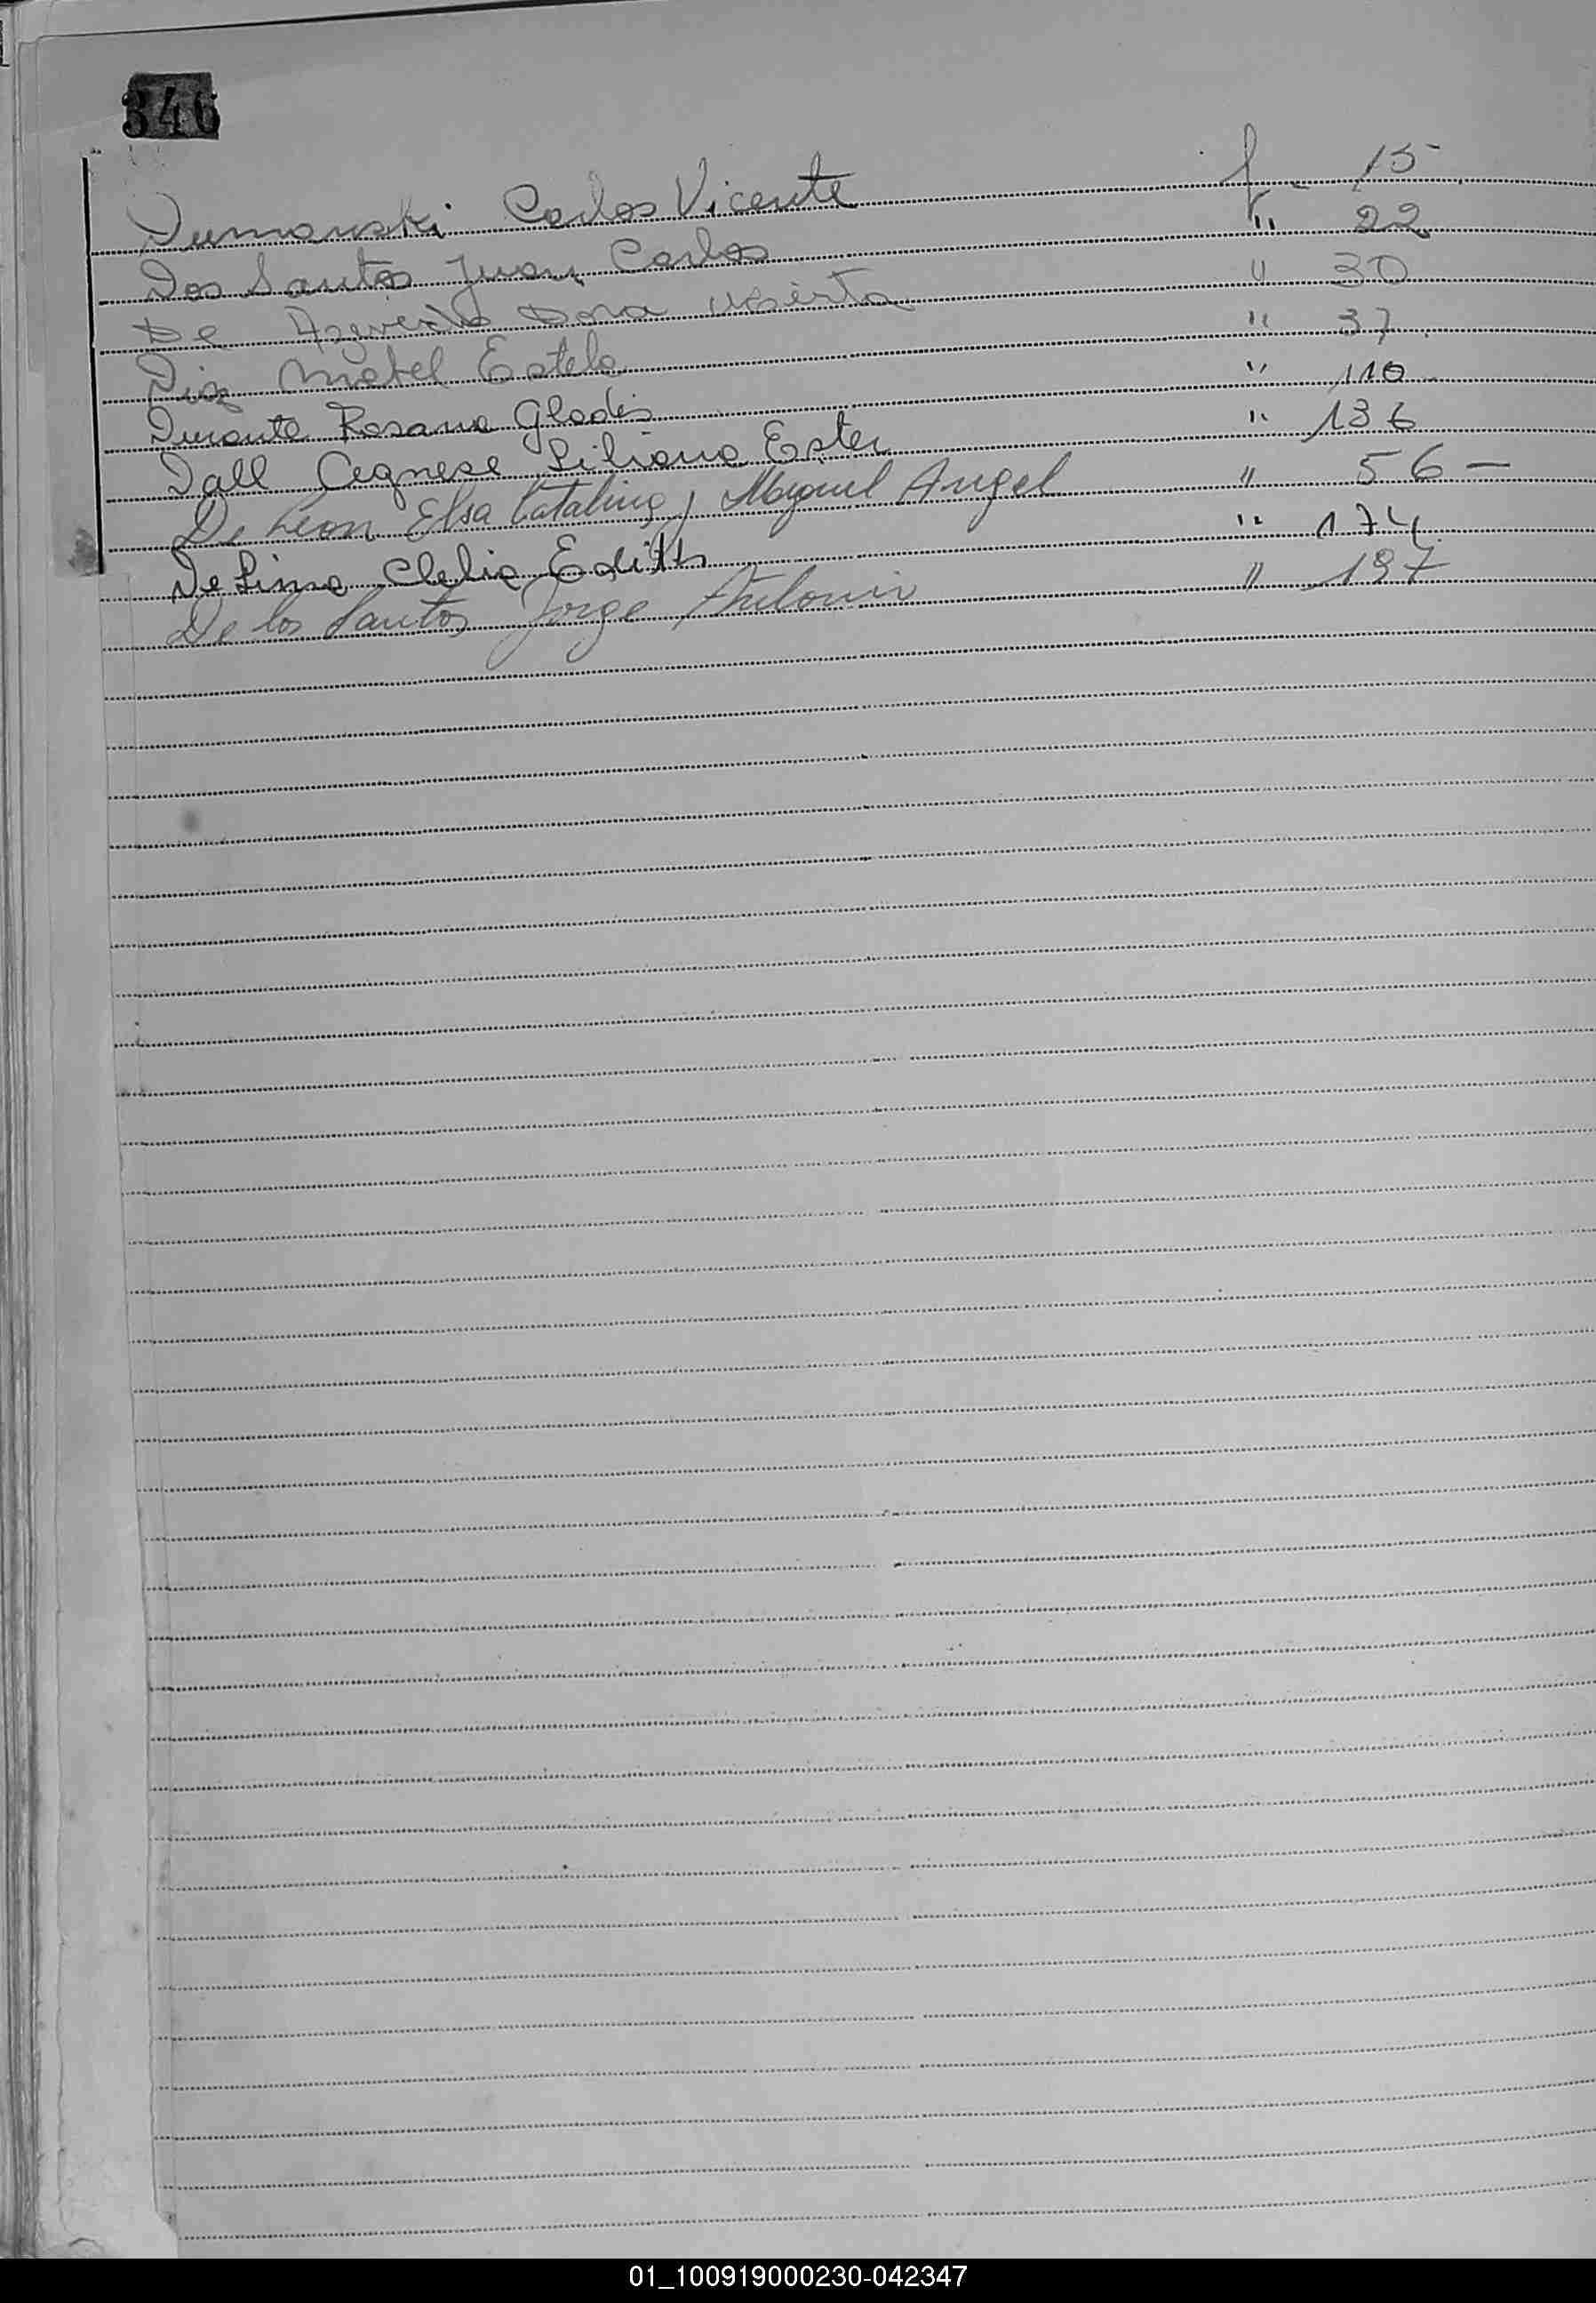 346
Dumanski Carlos Vicente f - 15
Dos Santos Juan Carlos " 22
De Azevedo Dora " 30
Diz Mabel Estela " 37
Durante Rosana Gladis " 110
Dall Cegnese Liliana Ester " 136
De Leon Elsa Catalina y Miguel Angel " 56 —
De Lima Clelia Edith " 174
De los Santos Jorge Antonio " 197
01_100919000230-042347